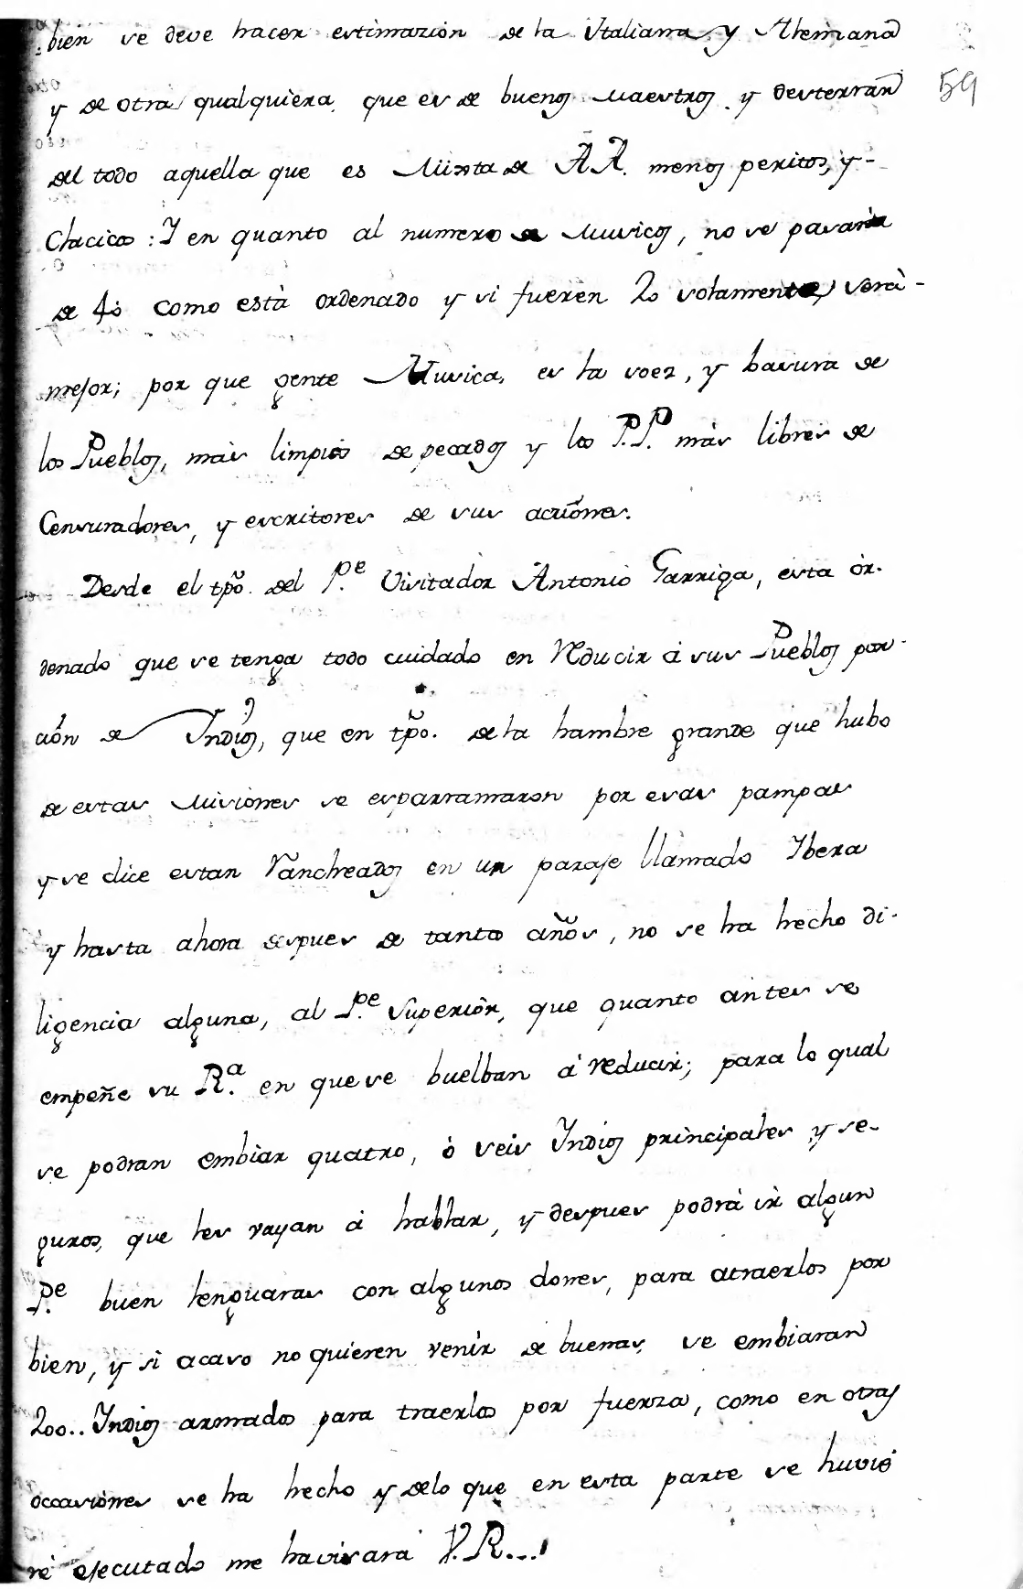 bien se deve hacer estimazión de la Italiana y Alemana
59
y de otra qualquiera que es de buenos Maestros y desterran
del todo aquella que es Mixta de AA. menos peritos, y
Clacicos: Y en quanto al numero de Musicos, no se pasaria
de 40 como està ordenado y si fueren 20 solamente, serà
mejor; por que gente Musica, es la voez, y basura de
los Pueblos, màs limpios de pecados y los P.P. màs libres de
Censuradores, y escritores de sus acciones.
Desde el tpõ. del P.e Visitador Antonio Garriga, esta òr-
denado que se tenga todo cuidado en Reducir á sus Pueblos por-
ción de Indios, que en tpõ. de la hambre grande que hubo
de estas Missiones se esparramaron por esas pampas
y se dice estan Rancheados en un paraje llamado Ibera
y hasta ahora despues de tantos años, no se ha hecho di-
ligencia alguna, al P.e Superiòr, que quanto antes se
empeñe su R.a en que se buelban á reducir; para lo qual
se podran embiar quatro, ò seis Indios principales y se-
guros, que les vayan á hablar, y despues podrà ir algun
P.e buen lenguaras con algunos dones, para atraerlos por
bien, y si acaso no quieren venir de buenas, se embiaran
200.. Indios armados para traerlos por fuerza, como en otras
occasiònes se ha hecho y delo que en esta parte se huvie
re ejecutado me havisara V.R...